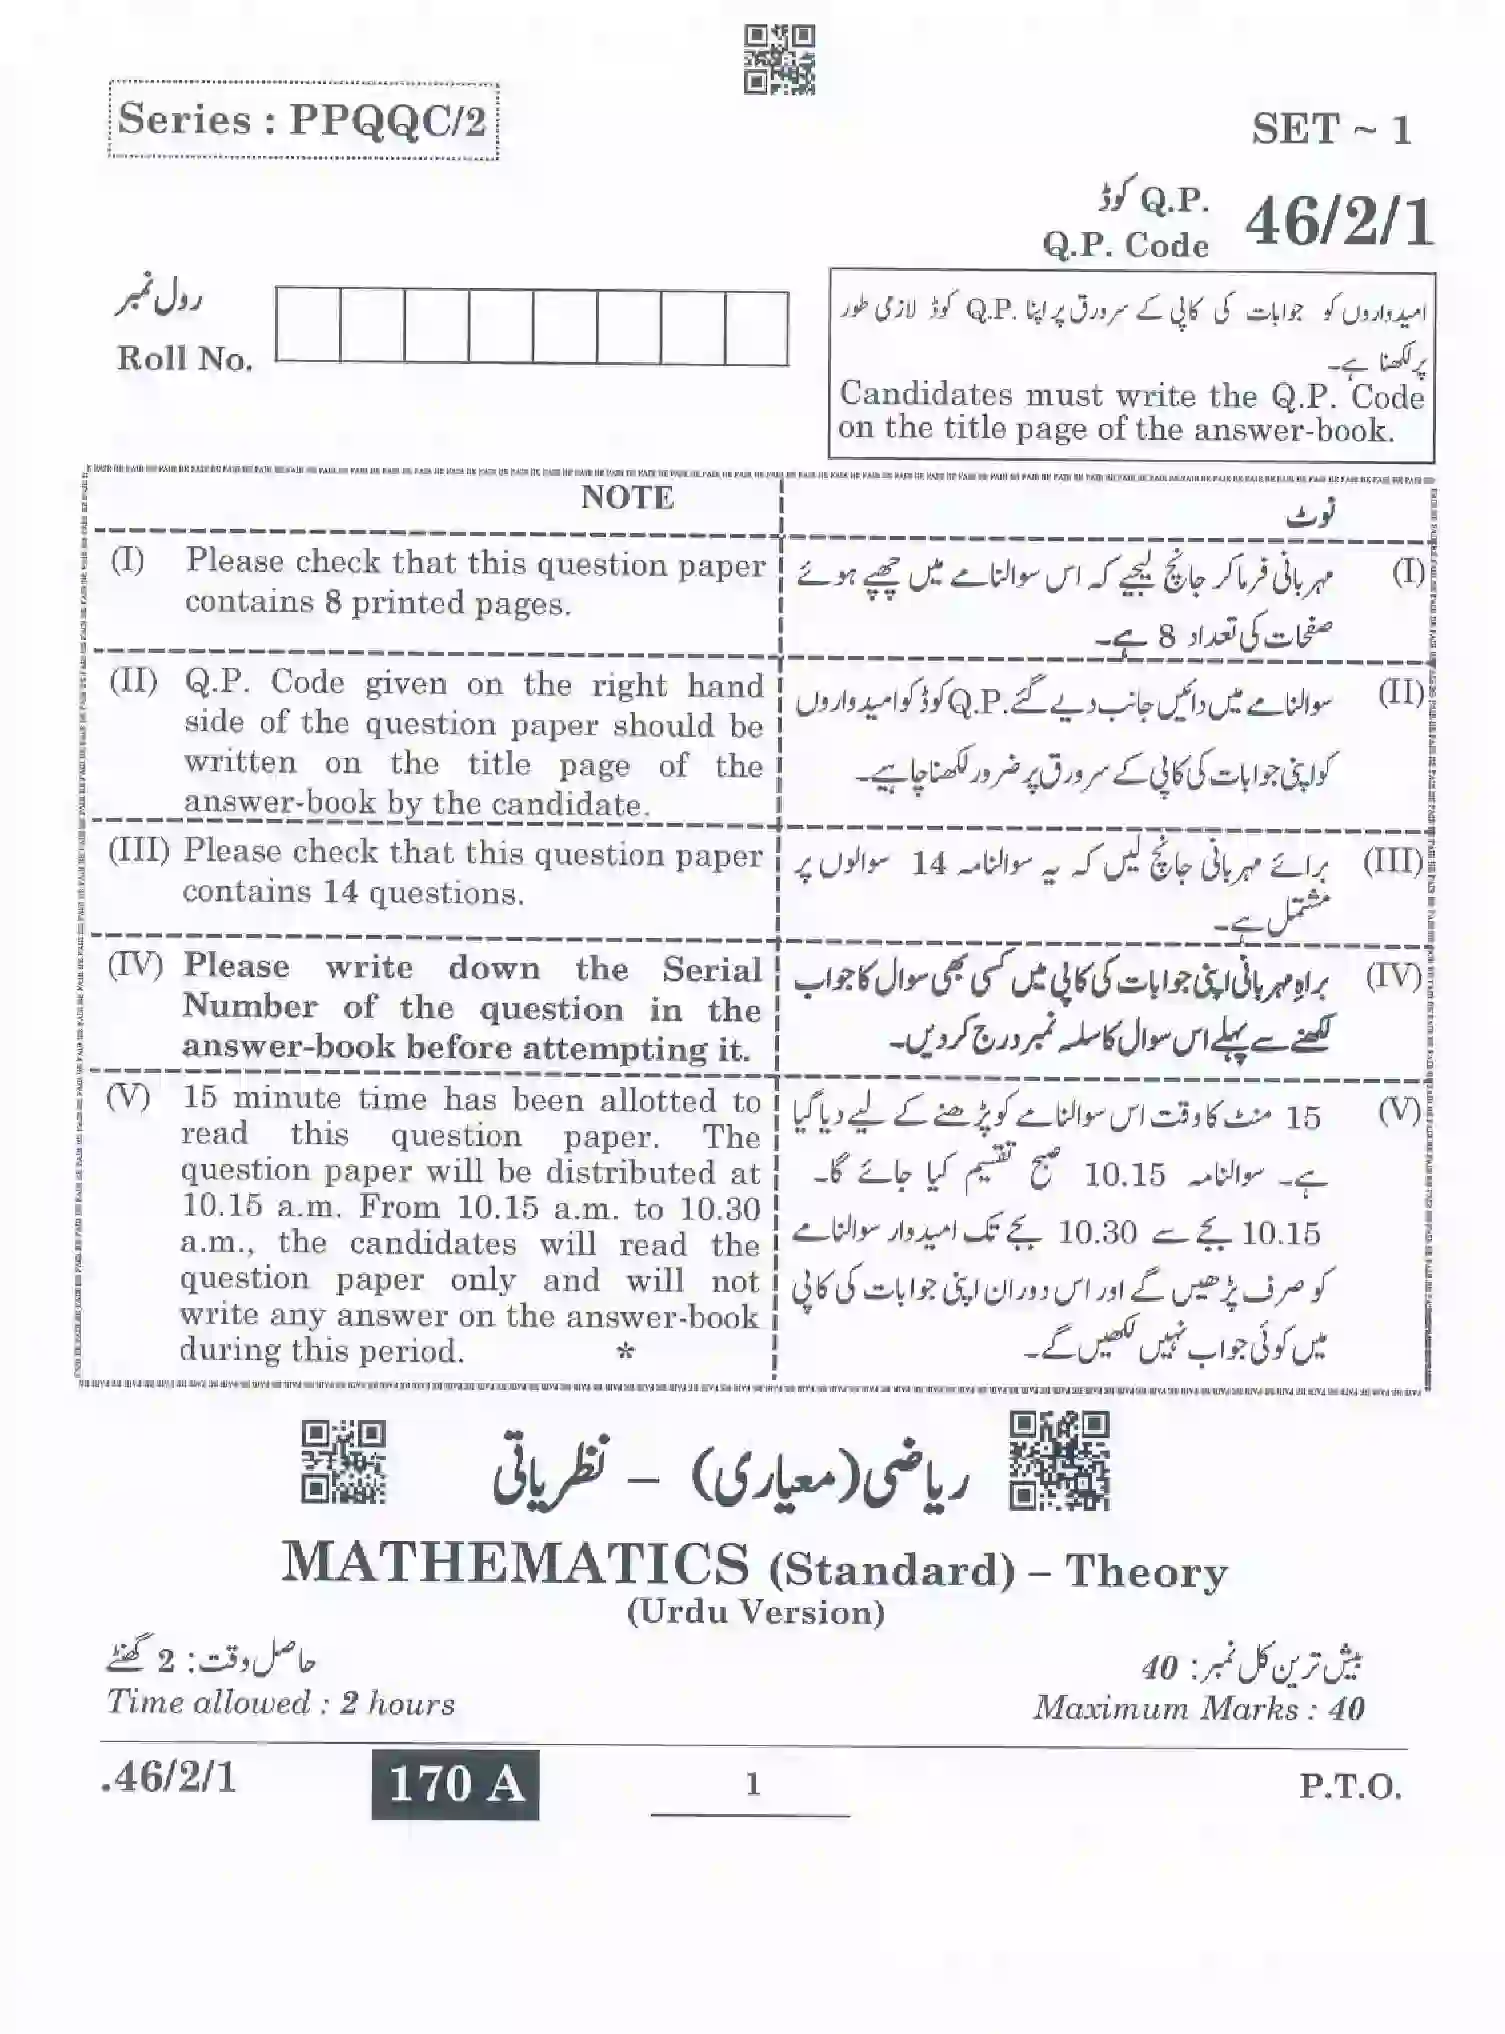 Series : PPQQC/2
SET ~ 1
Q.P. کوڈ
Q.P. Code
46/2/1
رول نمبر
Roll No.
امیدواروں کو جوابات کی کاپی کے سرورق پر اپنا Q.P. کوڈ لازمی طور
پر لکھنا ہے۔
Candidates must write the Q.P. Code
on the title page of the answer-book.
NOTE
(I) Please check that this question paper
contains 8 printed pages.
(II) Q.P. Code given on the right hand
side of the question paper should be
written on the title page of the
answer-book by the candidate.
(III) Please check that this question paper
contains 14 questions.
(IV) Please write down the Serial
Number of the question in the
answer-book before attempting it.
(V) 15 minute time has been allotted to
read this question paper. The
question paper will be distributed at
10.15 a.m. From 10.15 a.m. to 10.30
a.m., the candidates will read the
question paper only and will not
write any answer on the answer-book
during this period. *
نوٹ
(I) مہربانی فرما کر جانچ لیجیے کہ اس سوالنامے میں چھپے ہوئے
صفحات کی تعداد 8 ہے۔
(II) سوالنامے میں دائیں جانب دیے گئے Q.P. کوڈ کو امیدواروں
کو اپنی جوابات کی کاپی کے سرورق پر ضرور لکھنا چاہیے۔
(III) برائے مہربانی جانچ لیں کہ یہ سوالنامہ 14 سوالوں پر
مشتمل ہے۔
(IV) براہِ مہربانی اپنی جوابات کی کاپی میں کسی بھی سوال کا جواب
لکھنے سے پہلے اس سوال کا سلسلہ نمبر درج کر دیں۔
(V) 15 منٹ کا وقت اس سوالنامے کو پڑھنے کے لیے دیا گیا
ہے۔ سوالنامہ 10.15 صبح تقسیم کیا جائے گا۔
10.15 بجے سے 10.30 بجے تک امیدوار سوالنامے
کو صرف پڑھیں گے اور اس دوران اپنی جوابات کی کاپی
میں کوئی جواب نہیں لکھیں گے۔
ریاضی (معیاری) – نظریاتی
MATHEMATICS (Standard) – Theory
(Urdu Version)
حاصل وقت: 2 گھنٹے
بیش ترین کل نمبر: 40
Time allowed : 2 hours
Maximum Marks : 40
.46/2/1
170 A
1
P.T.O.